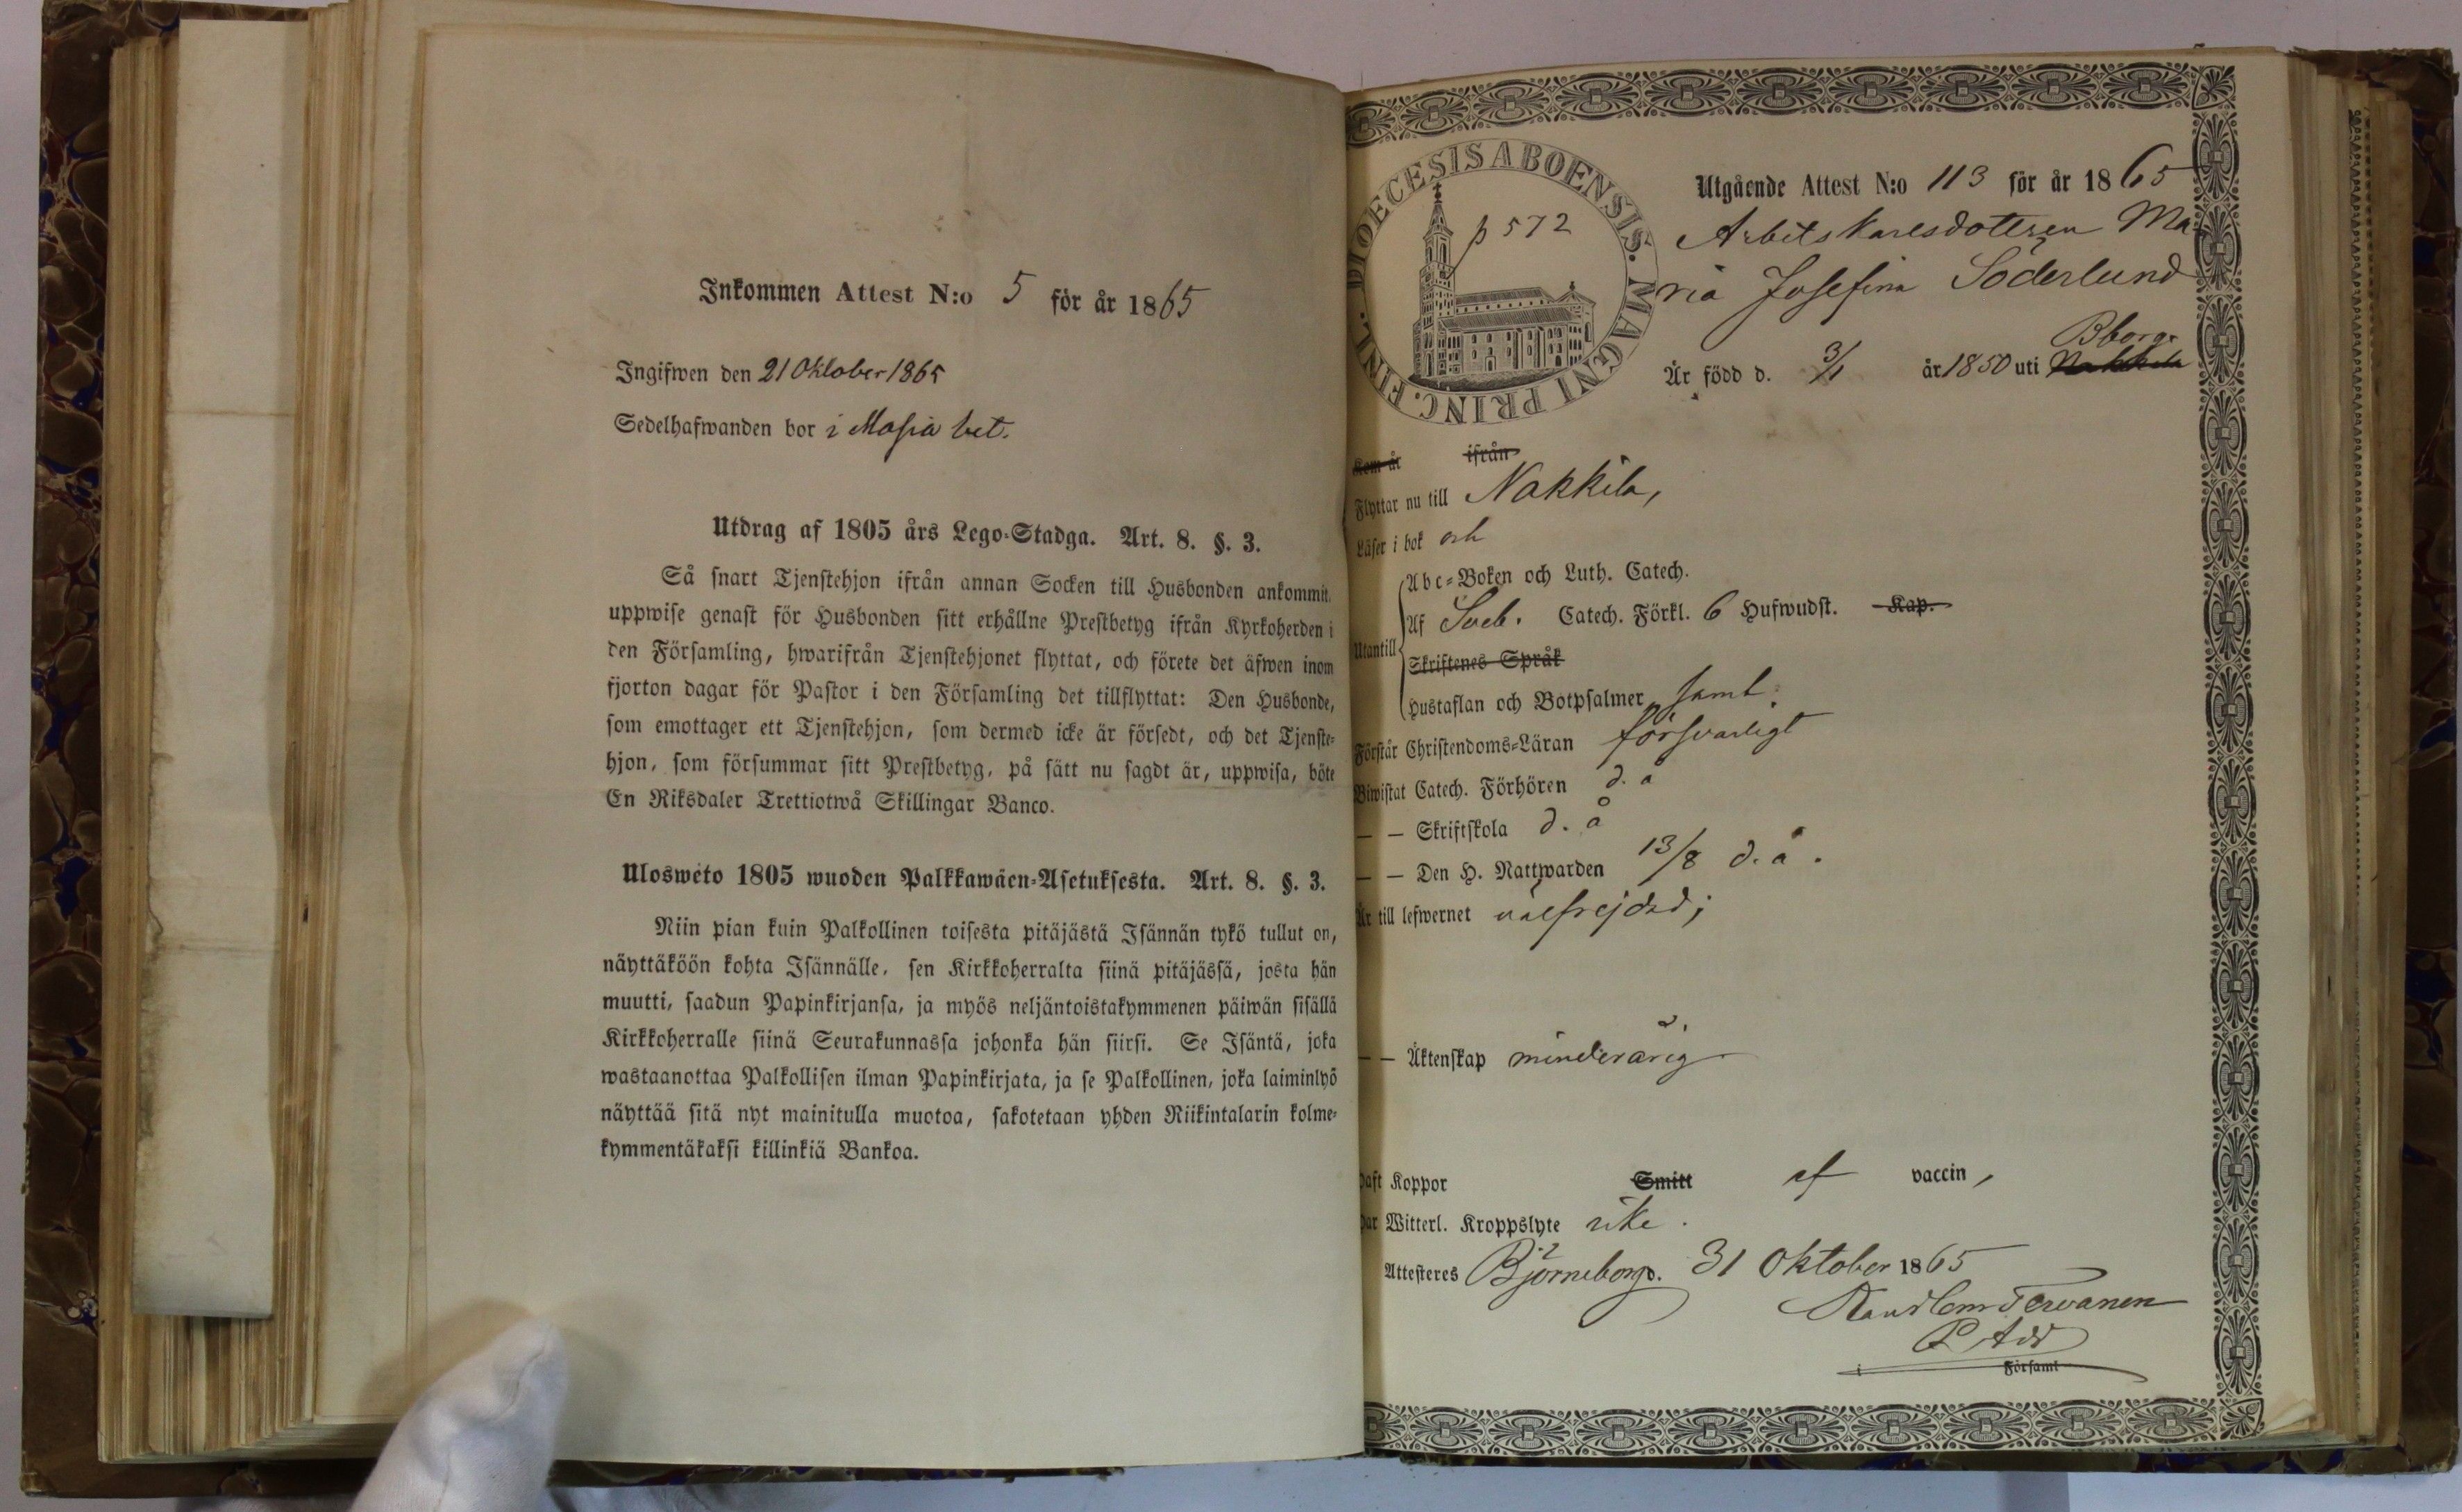 Inkommen Attest N:o 5 för år 1865
Ingifwen den 21 Oktober 1865
Sedelhafwanden bor i Masia bet.
Utdrag af 1805 års Lego-Stadga. Art. 8. §. 3.
Så snart Tjenstehjon ifrån annan Socken till Husbonden ankommit,
uppwise genast för Husbonden sitt erhållne Prestbetyg ifrån Kyrkoherden i
den Församling, hwarifrån Tjenstehjonet flyttat, och förete det äfwen inom
fjorton dagar för Pastor i den Församling det tillflyttat: Den Husbonde,
som emottager ett Tjenstehjon, som dermed icke är försedt, och det Tjenste-
hjon, som försummar sitt Prestbetyg, på sätt nu sagdt är, uppwisa, böte
En Riksdaler Trettiotwå Skillingar Banco.
Uloswéto 1805 wuoden Palkkawäen-Asetuksesta. Art. 8. §. 3.
Niin pian kuin Palkollinen toisesta pitäjästä Isännän tykö tullut on,
näyttäköön kohta Isännälle, sen Kirkkoherralta siinä pitäjässä, josta hän
muutti, saadun Papinkirjansa, ja myös neljäntoistakymmenen päiwän sisällä
Kirkkoherralle siinä Seurakunnassa johonka hän siirsi. Se Isäntä, joka
wastaanottaa Palkollisen ilman Papinkirjata, ja se Palkollinen, joka laiminlyö
näyttää sitä nyt mainitulla muotoa, sakotetaan yhden Riikintalarin kolme-
kymmentäkaksi killinkiä Bankoa.
DIOECESIS ABOENSIS. MAGNI PRINC. FINL.
p 572
Utgående Attest N:o 113 för år 1865
Arbetskarlsdottren Ma-
ria Josefina Söderlund
Bborg.
Är född d. 3/1 år 1850 uti Nakkila
Kom år ifrån
Flyttar nu till Nakkila,
Läser i bok och
Abc-Boken och Luth. Catech.
Utantill Af Sveb. Catech. Förkl. 6 Hufwudst. Kap.
Skriftenes Språk
Hustaflan och Botpsalmer samt
Förstår Christendoms-Läran försvarligt
Biwistat Catech. Förhören d. å
— — Skriftskola d. å
— — Den H. Nattwarden 13/8 d. å.
Är till lefwernet välfrejdad;
— — Äktenskap minderårig
Haft Koppor Smitt af vaccin,
Har Witterl. Kroppslyte icke.
Attesteres Björneborg d. 31 Oktober 1865
Tervanen
i Församl